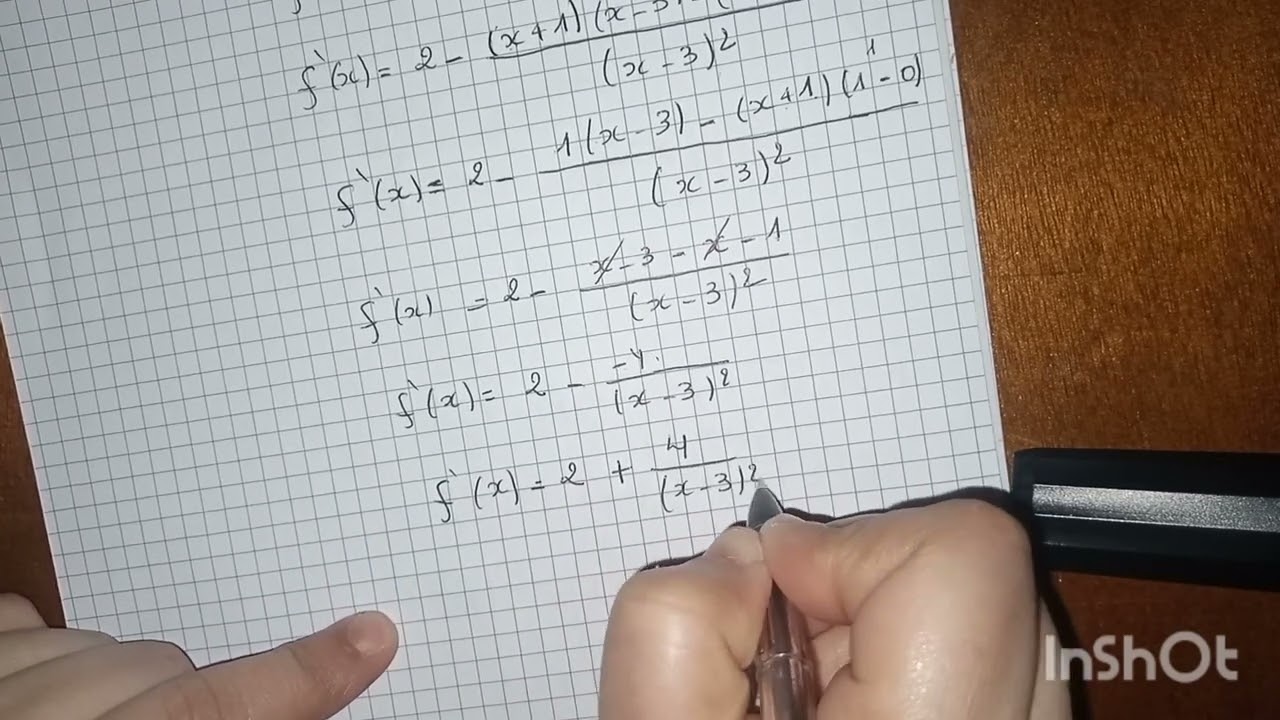 f'(x) = 2 - (x+1)(x-3) (x-3)²
f'(x) = 2 - 1(x-3) - (x+1)(1-0) / (x-3)²
f'(x) = 2 - x-3-x-1 / (x-3)²
f'(x) = 2 - -4 / (x-3)²
f'(x) = 2 + 4 / (x-3)²
InShOt